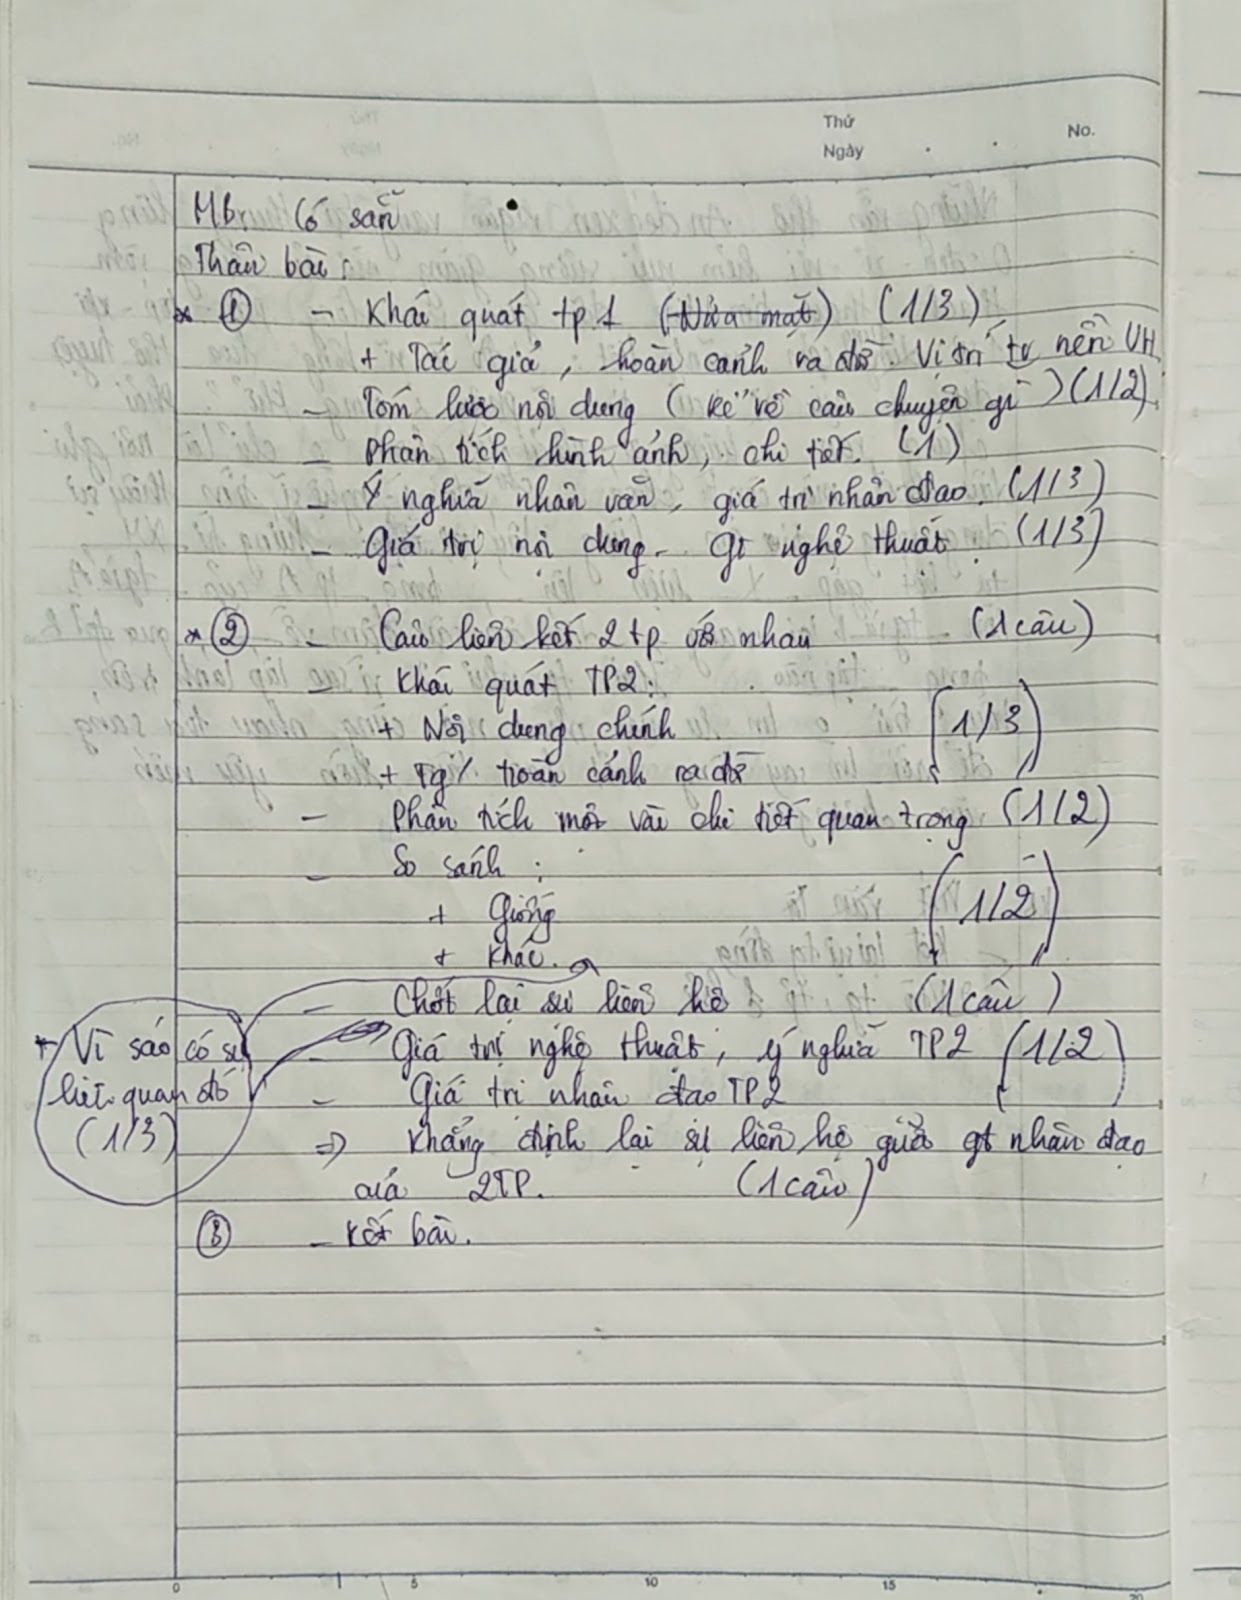 Thứ
Ngày
No.
Mb: Có sẵn
Thân bài:
* ① - Khái quát tp 1 (Nửa mặt) (1/3)
+ Tác giả, hoàn cảnh ra đời. Vị trí tr nền VH
- Tóm lược nội dung (kể về câu chuyện gì) (1/2)
- Phân tích hình ảnh, chi tiết. (1)
- Ý nghĩa nhân văn, giá trị nhân đạo. (1/3)
- Giá trị nội dung - gt nghệ thuật (1/3)
* ② - Câu liên kết 2 tp với nhau (1 câu)
- Khái quát TP2:
+ Nội dung chính (1/3)
+ Tg/ hoàn cảnh ra đời
- Phân tích một vài chi tiết quan trọng (1/2)
- So sánh:
+ Giống (1/2)
+ Khác.
- Chốt lại sự liên hệ (1 câu)
* Vì sao có sự
liên quan đó
(1/3)
- Giá trị nghệ thuật, ý nghĩa TP2 (1/2)
- Giá trị nhân đạo TP2
⇒ Khẳng định lại sự liên hệ giữa gt nhân đạo
của 2TP. (1 câu)
③ - Kết bài.
0 5 10 15 20